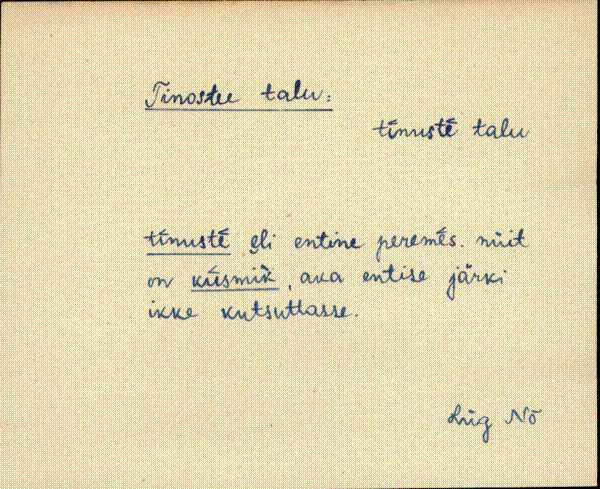 Tinostee talu:
tinustē talu
tinustē ęli entine peremēs. nüit
on kūsmik̀, ava entise järki
ikke kutsuttasse.
Lüg Nõ